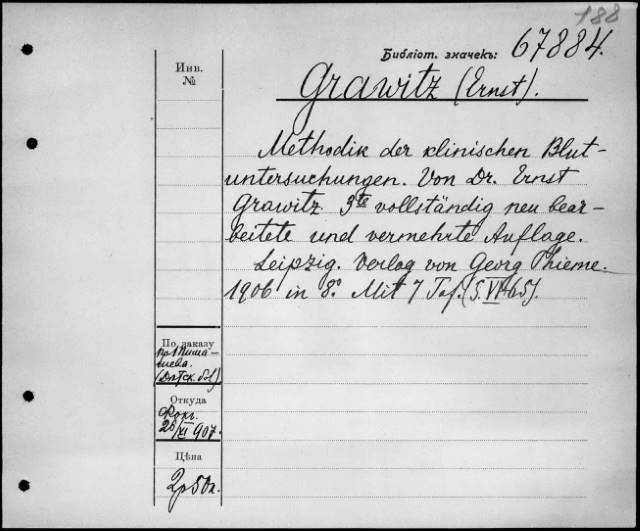 188
Библіот. значекъ: 67884.
Grawitz (Ernst).
Инв.
№
Methodik der klinischen Blut-
untersuchungen. Von Dr. Ernst
Grawitz. 3te vollständig neu bear-
beitete und vermehrte Auflage.
Leipzig. Verlag von Georg Thieme.
1906 in 8º. Mit 7 Taf. (S. VI+65).
По заказу
Откуда
28/XI 907.
Цѣна
2р50к.